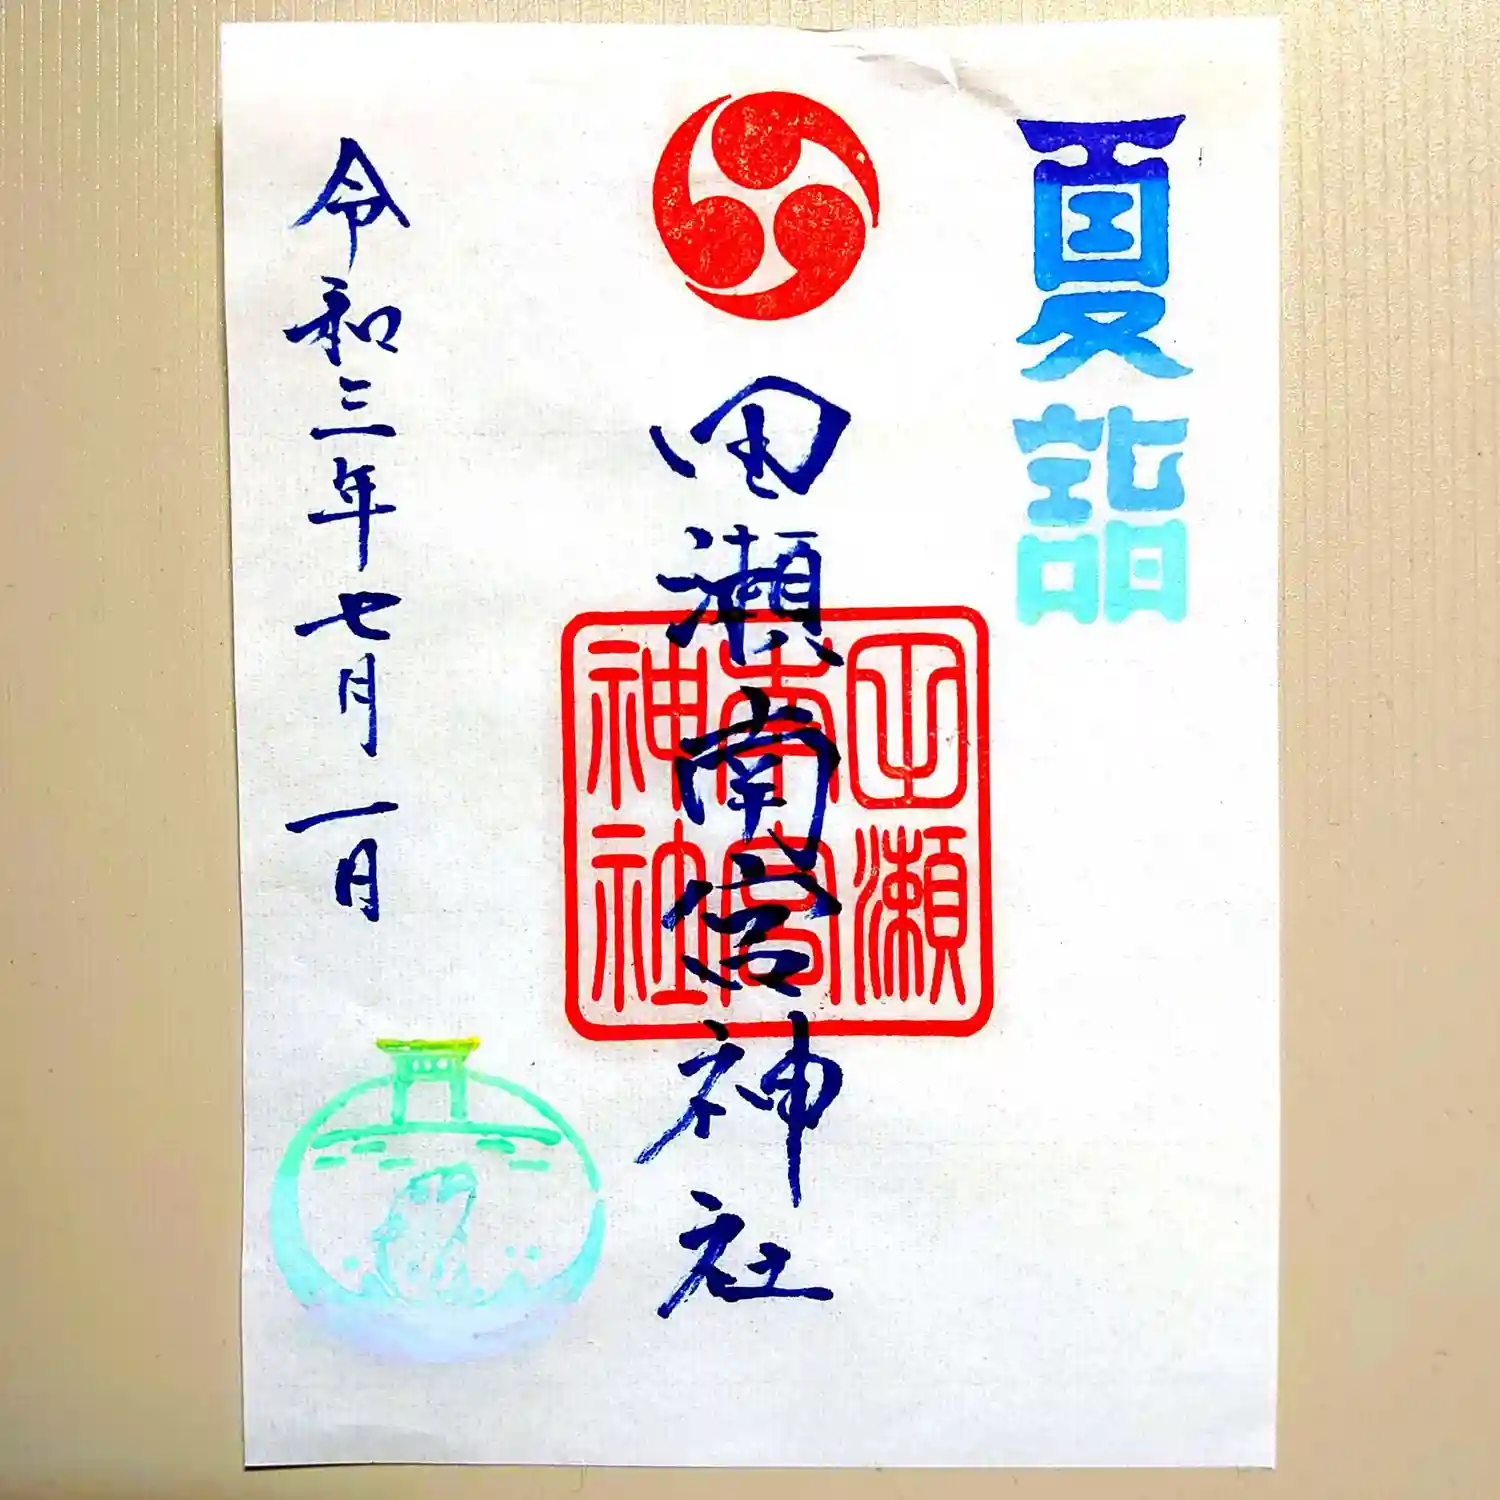 夏詣
田瀬南宮神社
田瀬
南宮
神社
令和三年七月一日